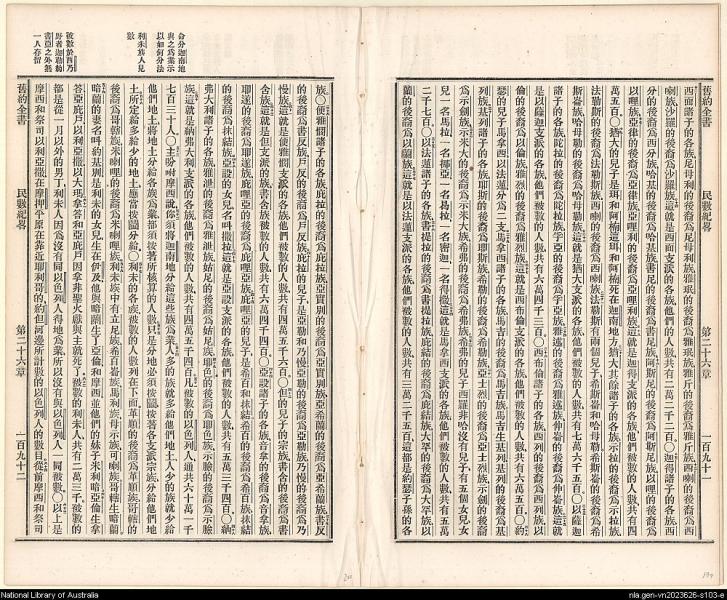 舊約全書
民數紀畧
第二十六章
一百九十一
西面諸子的各族尼母利的後裔爲尼母利族雅珉的後裔爲雅珉族雅斤的後裔爲雅斤族西喇的後裔爲西
喇族沙羅的後裔爲沙羅族這就是西面支派的各族他們的人數共有二萬二千二百〇迦得諸子的各族西
分的後裔爲西分族哈基的後裔爲哈基族書尼的後裔爲書尼族阿斯尼的後裔爲阿斯尼族以哩的後裔爲
以哩族亞律的後裔爲亞律族亞哩利的後裔爲亞哩利族這就是迦得支派的各族他們被數的人數共有四
萬五百〇猶大的兒子是珥和阿楠這珥和阿楠死在迦南地方猶大其餘諸子的各族示拉的後裔爲示拉族
法勒斯的後裔爲法勒斯族西喇的後裔爲西喇族法勒斯有兩個兒子希斯崙和哈母勒希斯崙的後裔爲希
斯崙族哈母勒的後裔爲哈母勒族這就是猶大支派的各族他們被數的人數共有七萬六千五百〇以薩迦
諸子的各族陀拉的後裔爲陀拉族孚亞的後裔爲孚亞族雅述的後裔爲雅述族伸崙的後裔爲伸崙族這就
是以薩迦支派的各族他們被數的人數共有六萬四千三百〇西布倫諸子的各族西烈的後裔爲西烈族以
倫的後裔爲以倫族雅烈的後裔爲雅烈族這就是西布倫支派的各族他們被數的人數共有六萬五百〇約
瑟的兒子馬拿西以法蓮分爲二支馬拿西諸子的各族馬吉的後裔爲馬吉族馬吉生基列基列的後裔爲基
列族基列諸子的各族耶斯的後裔爲耶斯族希勒的後裔爲希勒族亞士烈的後裔爲亞士烈族示劍的後裔
爲示劍族示米大的後裔爲示米大族希弗的後裔爲希弗族希弗的兒子西羅非哈沒有兒子有五個女兒女
兒一名馬拉一名挪亞一名曷拉一名密迦一名得撒這就是馬拿西支派的各族他們被數的人數共有五萬
二千七百〇以法蓮諸子的各族書提拉的後裔爲書提拉族庇結的後裔爲庇結族大罕的後裔爲大罕族以
蘭的後裔爲以蘭族這就是以法蓮支派的各族他們被數的人數共有三萬二千五百這都是約瑟子孫的各
族〇便雅憫諸子的各族庇拉的後裔爲庇拉族亞實別的後裔爲亞實別族亞希蘭的後裔爲亞希蘭族書反
的後裔爲書反族戶反的後裔爲戶反族庇拉的兒子是亞勒和乃慢亞勒的後裔爲亞勒族乃慢的後裔爲乃
慢族這就是便雅憫支派的各族他們被數的人數共有四萬五千六百〇但的兒子的宗族書含的後裔爲書
含族這就是但支派的各族書含族被數的人數共有六萬四千四百〇亞設諸子的各族音拿的後裔爲音拿族
耶遂的後裔爲耶遂族庇哩亞的後裔爲庇哩亞族庇哩亞的兒子是希百和抹結希百的後裔爲希百族抹結
的後裔爲抹結族亞設的女兒名叫撒拉這就是亞設支派的各族他們被數的人數共有五萬三千四百〇納
弗大利諸子的各族雅泄的後裔爲雅泄族姑尼的後裔爲姑尼族耶色的後裔爲耶色族示臉的後裔爲示臉
族這就是納弗大利支派的各族他們被數的人數共有四萬五千四百凡被數的以色列人通共六十萬一千
七百三十人〇主吩咐摩西說你須將迦南地分給這些族爲業人多的族就多給他們地土人少的族就少給
他們地土將地土分給各族爲業都須按著所核算的人數只是分地必須按鬮按著各支派宗族分給他們地
土所定給多給少的地土應當按鬮分給〇利未的各族被數的人數列在下面革順的後裔爲革順族哥轄的
後裔爲哥轄族米喇哩的後裔爲米喇哩族利未族中有立尼族希百崙族馬利族母示族可喇族哥轄生暗蘭
暗蘭的妻名叫約基別是利未的女兒生在伊及他與暗蘭生了亞倫和摩西並他們的妹子米利暗亞倫生拿
答亞庇戶以利亞撒以大瑪拿答和亞庇戶因拿非聖火獻與主就死了被數的利未人共有二萬三千被數的
都是從一月以外的男丁利未人因爲沒有同以色列人得地爲業所以沒有與以色列人一同被數〇以上是
摩西和祭司以利亞撒在摩押平原在靠近耶利哥的約但河邊所計數的以色列人的數目從前摩西和祭司
舊約全書
民數紀畧
第二十六章
一百九十二
命分迦南地
與之爲業示
以如何分法
利未族人見
數
被數於西乃
野者迦勒約
書亞之外無
一人存留
National Library of Australia
nla.gen-vn2023626-s103-e